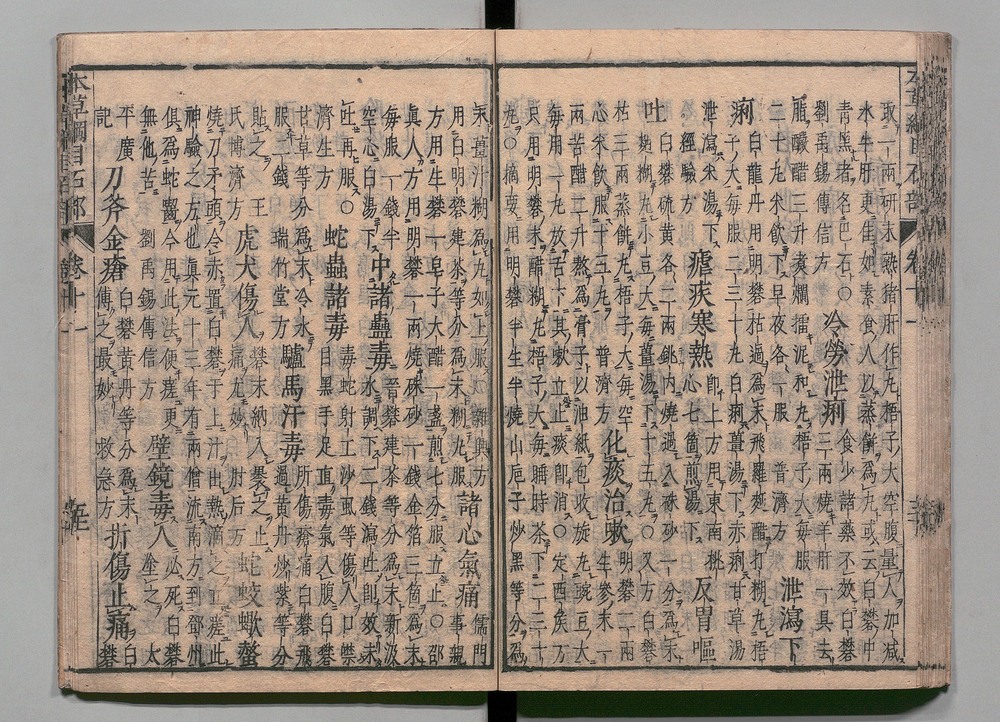 散一兩研末熟猪肝作丸梧子大空腹量人加減
水牛肝更佳如素食人以蒸餅為丸或云白礬中
青黑者名巴石〇冷勞泄痢食少諸藥不效白礬
劉禹錫傳信方三兩燒羊肝一具去
脂釅醋三升煮爛擂泥和丸梧子大每服泄瀉下
二十丸米飲下早夜各一服普濟方
痢白龍丹用明礬枯過為末飛羅麫醋打糊丸梧
子大每服二三十丸白痢薑湯下赤痢甘草湯
泄瀉米湯下瘧疾寒熱即上方用東南桃反胃嘔
經驗方心七箇煎湯下
吐白礬硫黄各二兩銚内燒過入硃砂一分為末
麪糊丸小豆大每薑湯下十五丸〇又方白礬
枯三兩蒸餅丸梧子大每空化痰治嗽明礬二兩
心米飲服十五丸普濟方生參末一
兩苦醋二升熬為膏子以油紙包收旋丸豌豆大
每用一丸放舌下其嗽立止痰即消〇定西侯方
只用明礬末醋糊丸梧子大每睡時茶下二三十
丸〇摘要用明礬半生半燒山巵子炒黑等分為
末薑汁糊為丸如上服雜興方諸心氣痛儒門事親
用白明礬建茶等分為末糊丸服
方用生礬一皂子大醋一盞煎七分服立止〇邵
眞人方用明礬一兩燒硃砂一錢金箔三箇為末
每服一錢半空心白湯下中諸蠱毒晉礬建茶等分為末新汲
水調下二錢瀉吐即效未
吐再服〇濟生方蛇蟲諸毒毒蛇射工沙虱等傷人口噤
目黑手足直毒氣入腹白礬
甘草等分為末冷水服二錢瑞竹堂方驢馬汗毒所傷瘡痛白礬飛
過黄丹炒紫等分
貼之王氏博濟方虎犬傷人礬末納入裹之止
痛尤妙肘后方蛇蛟蠍螫
燒刀矛頭令赤置白礬于上汁出熱滴之立瘥此
神驗之方也眞元十三年有兩僧流南方到鄧州
俱為蛇齧令用此法便瘥更
無他苦劉禹錫傳信方壁鏡毒人必死白礬
塗之太
平廣記刀斧金瘡白礬黄丹等分為末
傅之最妙救急方折傷止痛白礬